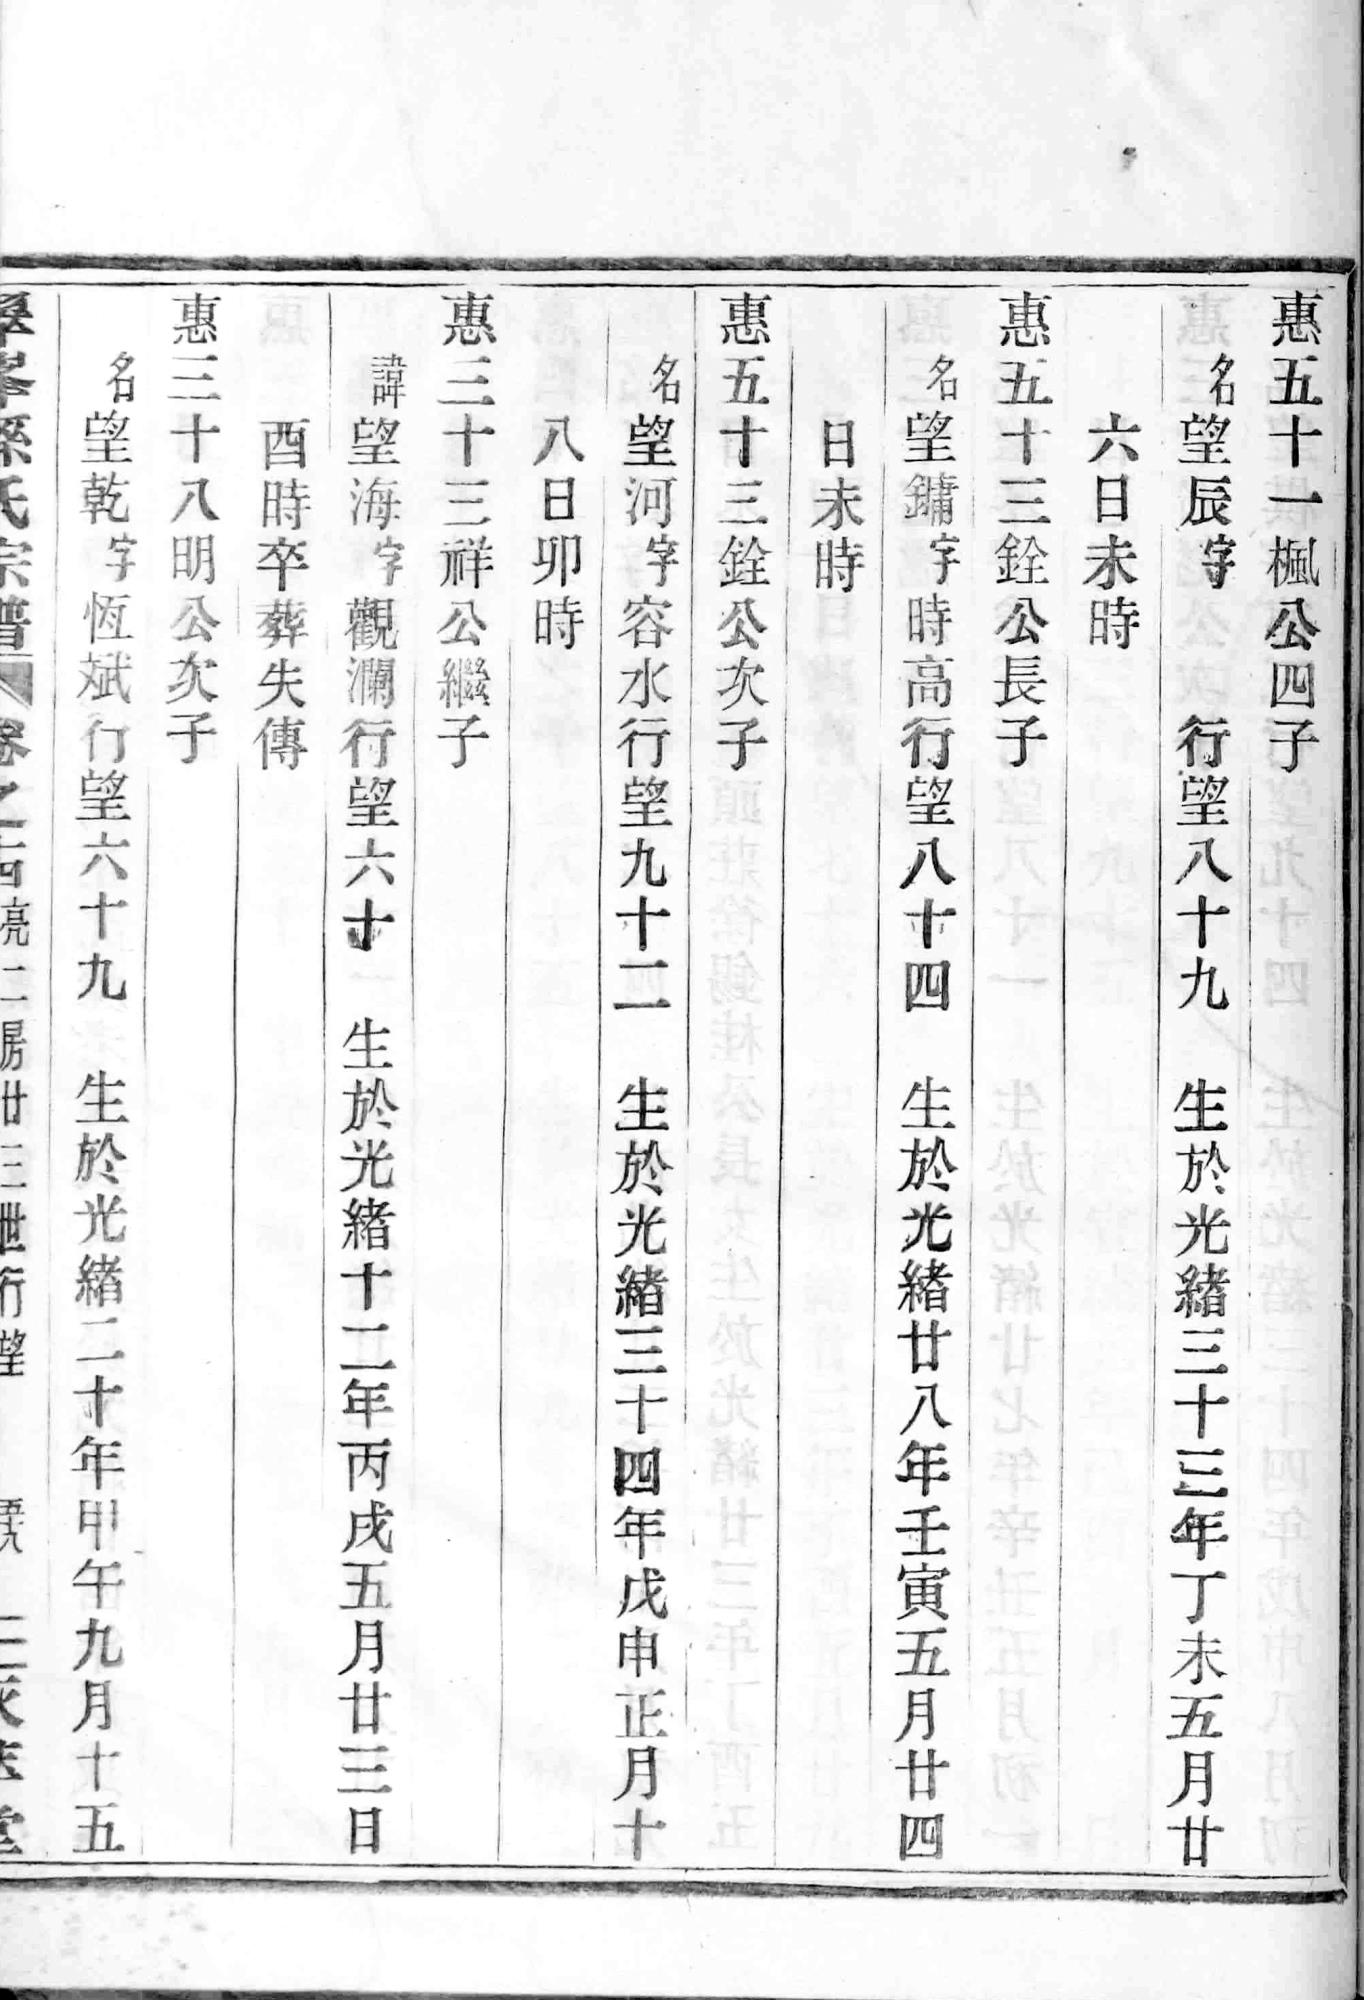 惠五十一楓公四子
名望辰字　　行望八十九　生於光緒三十三年丁未五月廿
六日未時
惠五十三銓公長子
名望鏞字時高行望八十四　生於光緒廿八年壬寅五月廿四
日未時
惠五十三銓公次子
名望河字容水行望九十二　生於光緒三十四年戊申正月十
八日卯時
惠三十三祥公繼子
諱望海字觀瀾行望六十　生於光緒十二年丙戌五月廿三日
酉時卒葬失傳
惠三十八明公次子
名望乾字恆斌行望六十九　生於光緒二十年甲午九月十五
孫氏宗譜　卷之　亮二房廿三世行望